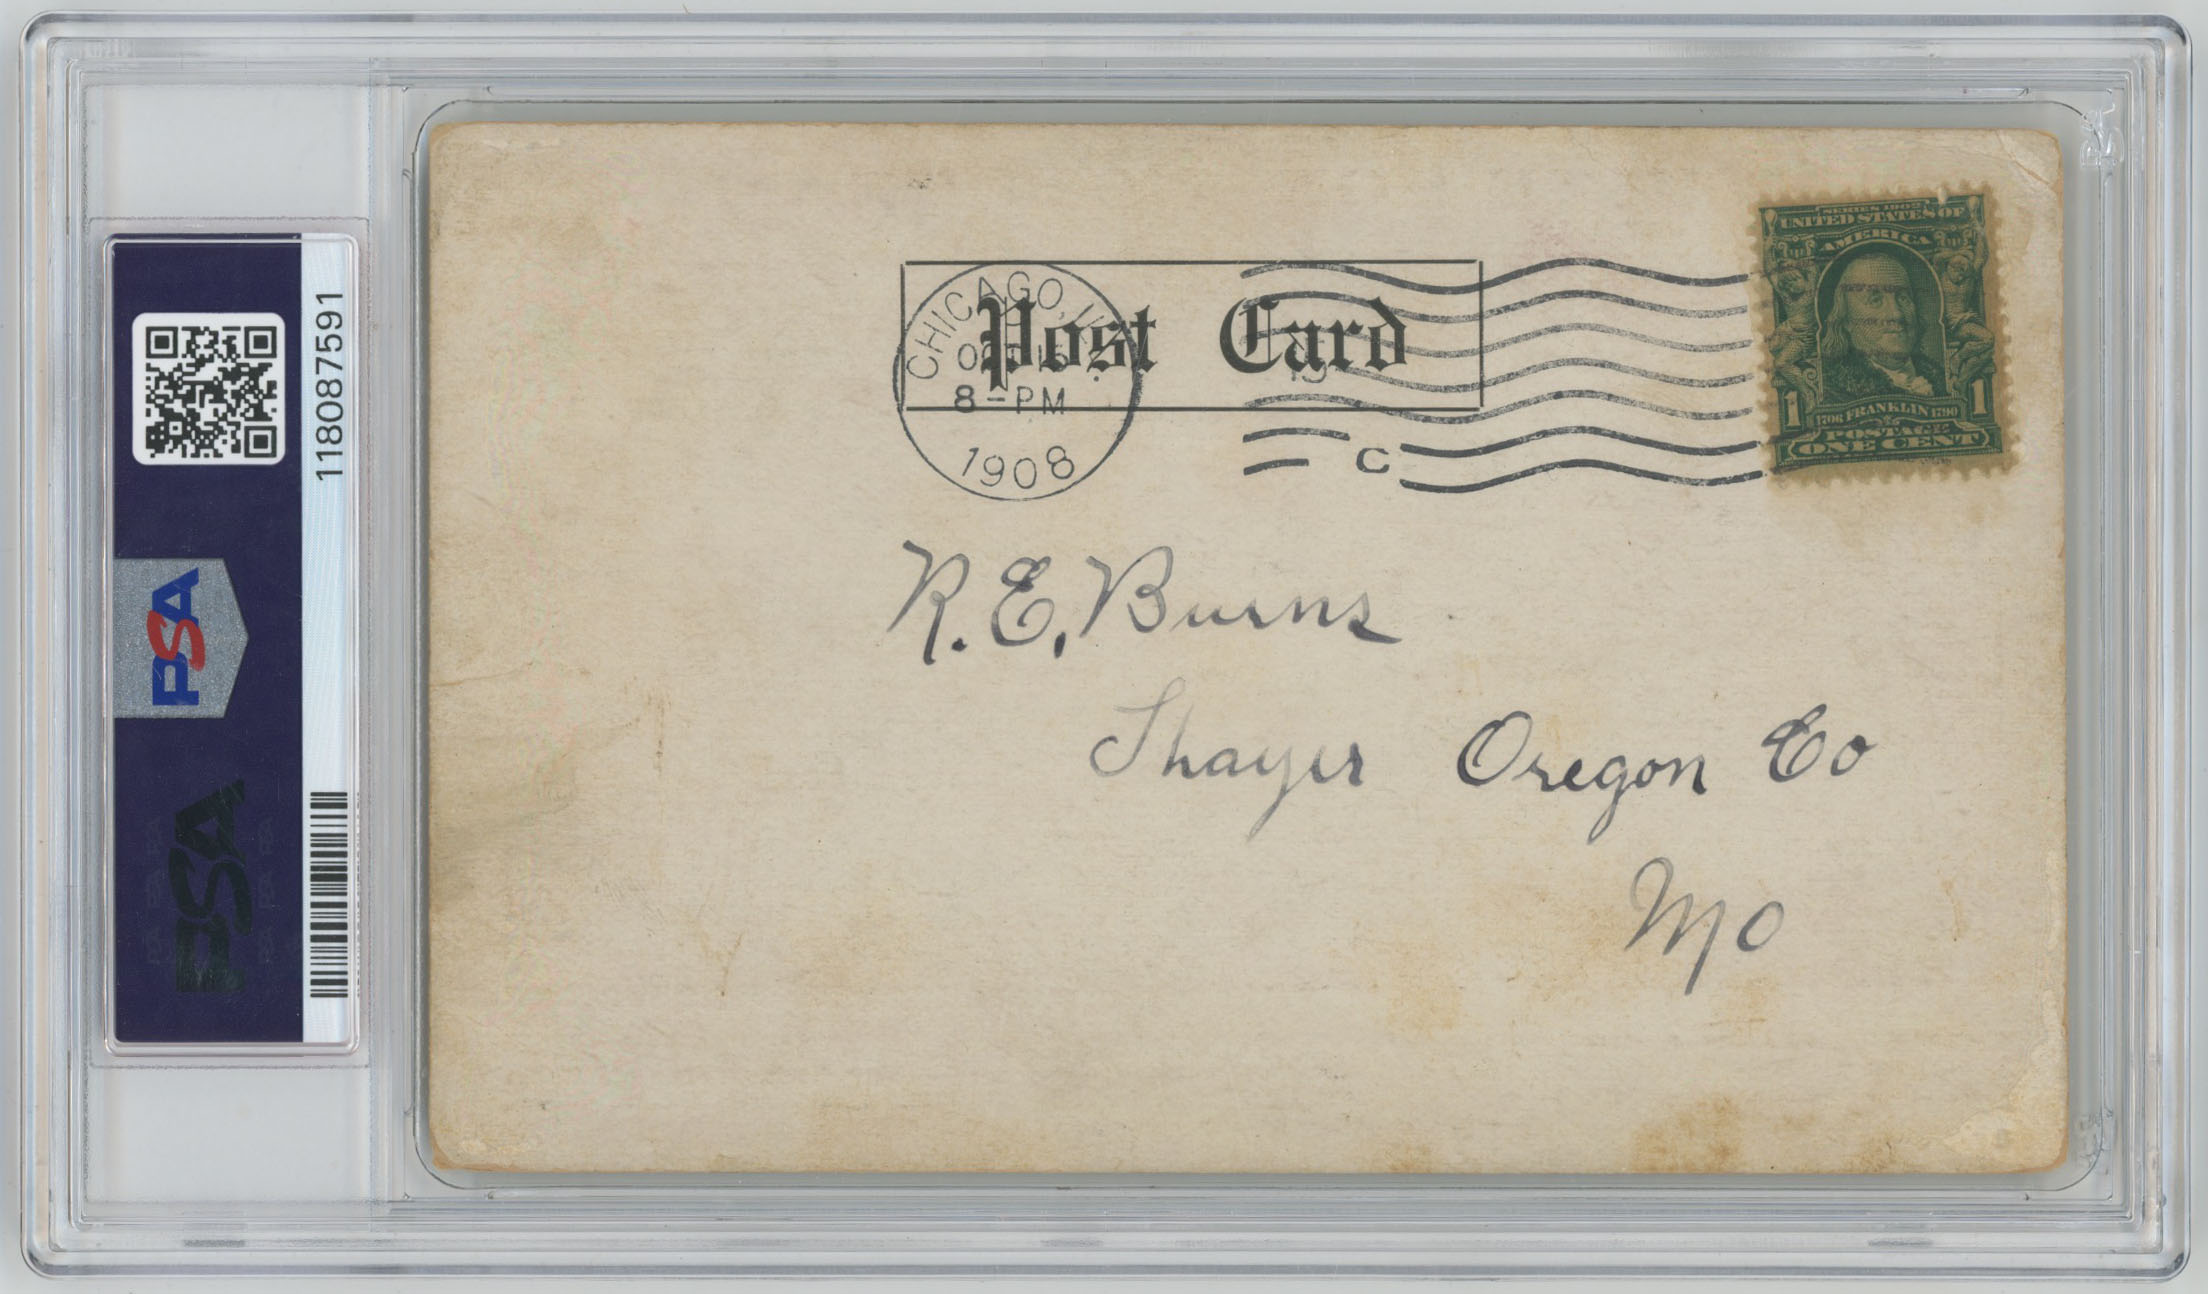 118087591
PSA
PSA
CHICAGO, ILL.
8-PM
1908
C
Post Card
SERIES 1902
UNITED STATES OF
AMERICA
1 1
1706 FRANKLIN 1790
POSTAGE
ONE CENT
R. E. Burns
Thayer Oregon Co
Mo